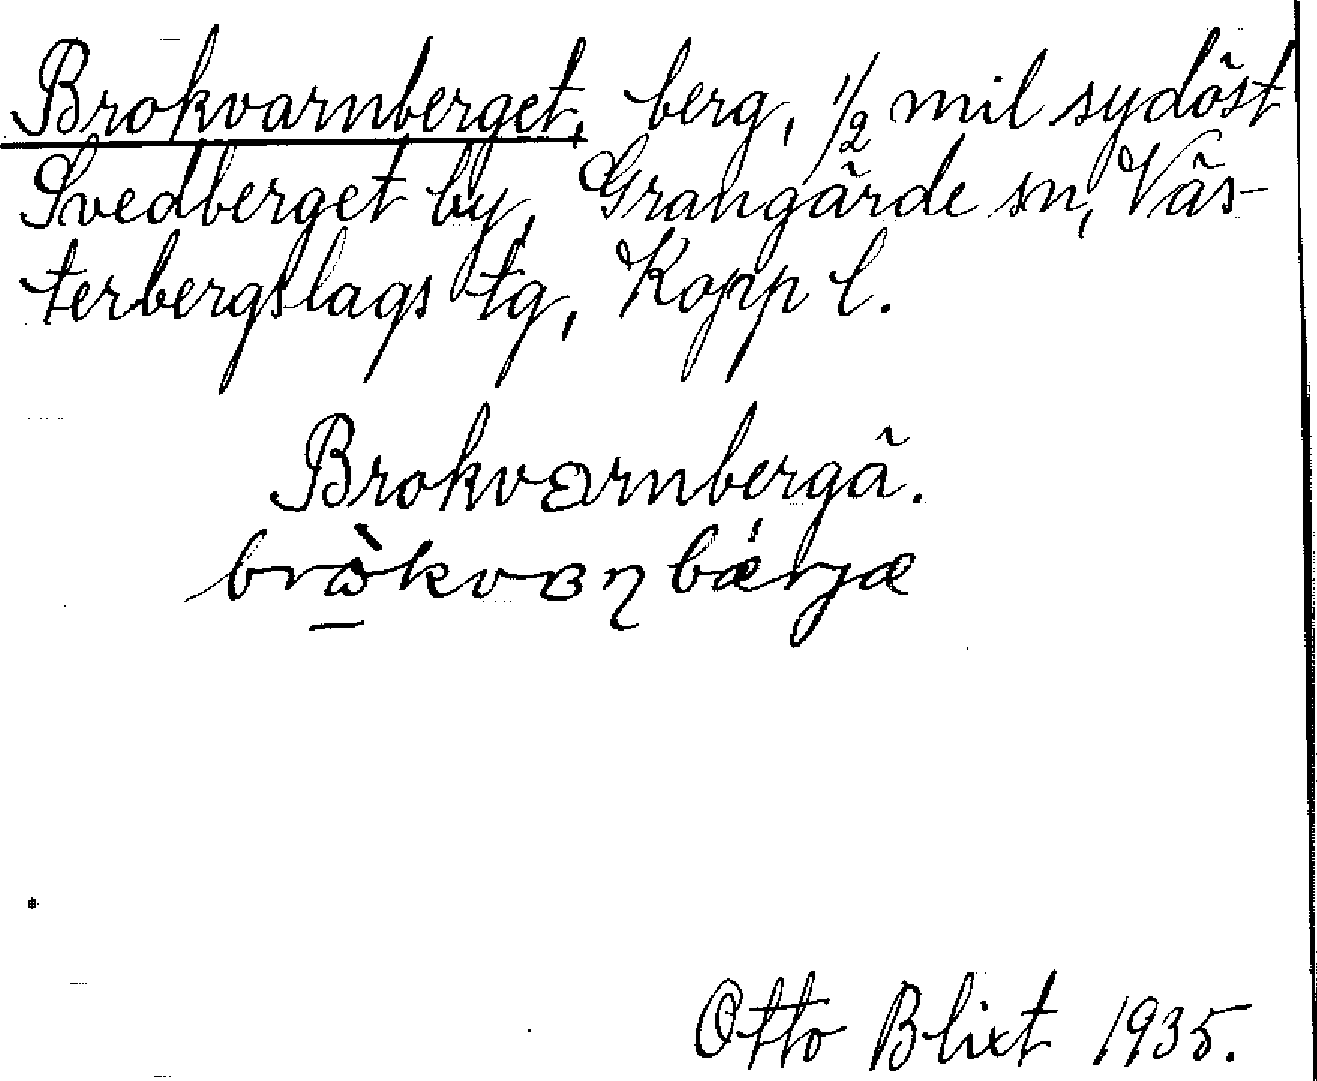 Brokvarnberget, berg, 1/2 mil sydöst
Svedberget by, Grangärde sn, Väs-
terbergslags tg, Kopp l.
Brokvarnbergä.
Otto Blixt 1935.